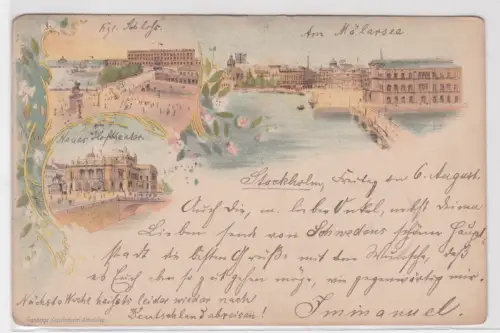 Kgl. Schloß.
Am Mälarsee
Neues Hoftheater.
Stockholm, Freitag den 6. August.
Auch Dir, m. lieber Onkel, nebst deinen
Lieben sende von Schwedens schöner Haupt
stadt die besten Grüße mit dem Wunsche, daß
es Euch so gut gehen möge, wie gegenwärtig mir.
Nächste Woche heißts leider wieder nach
Deutschland abreisen!
Immanuel.